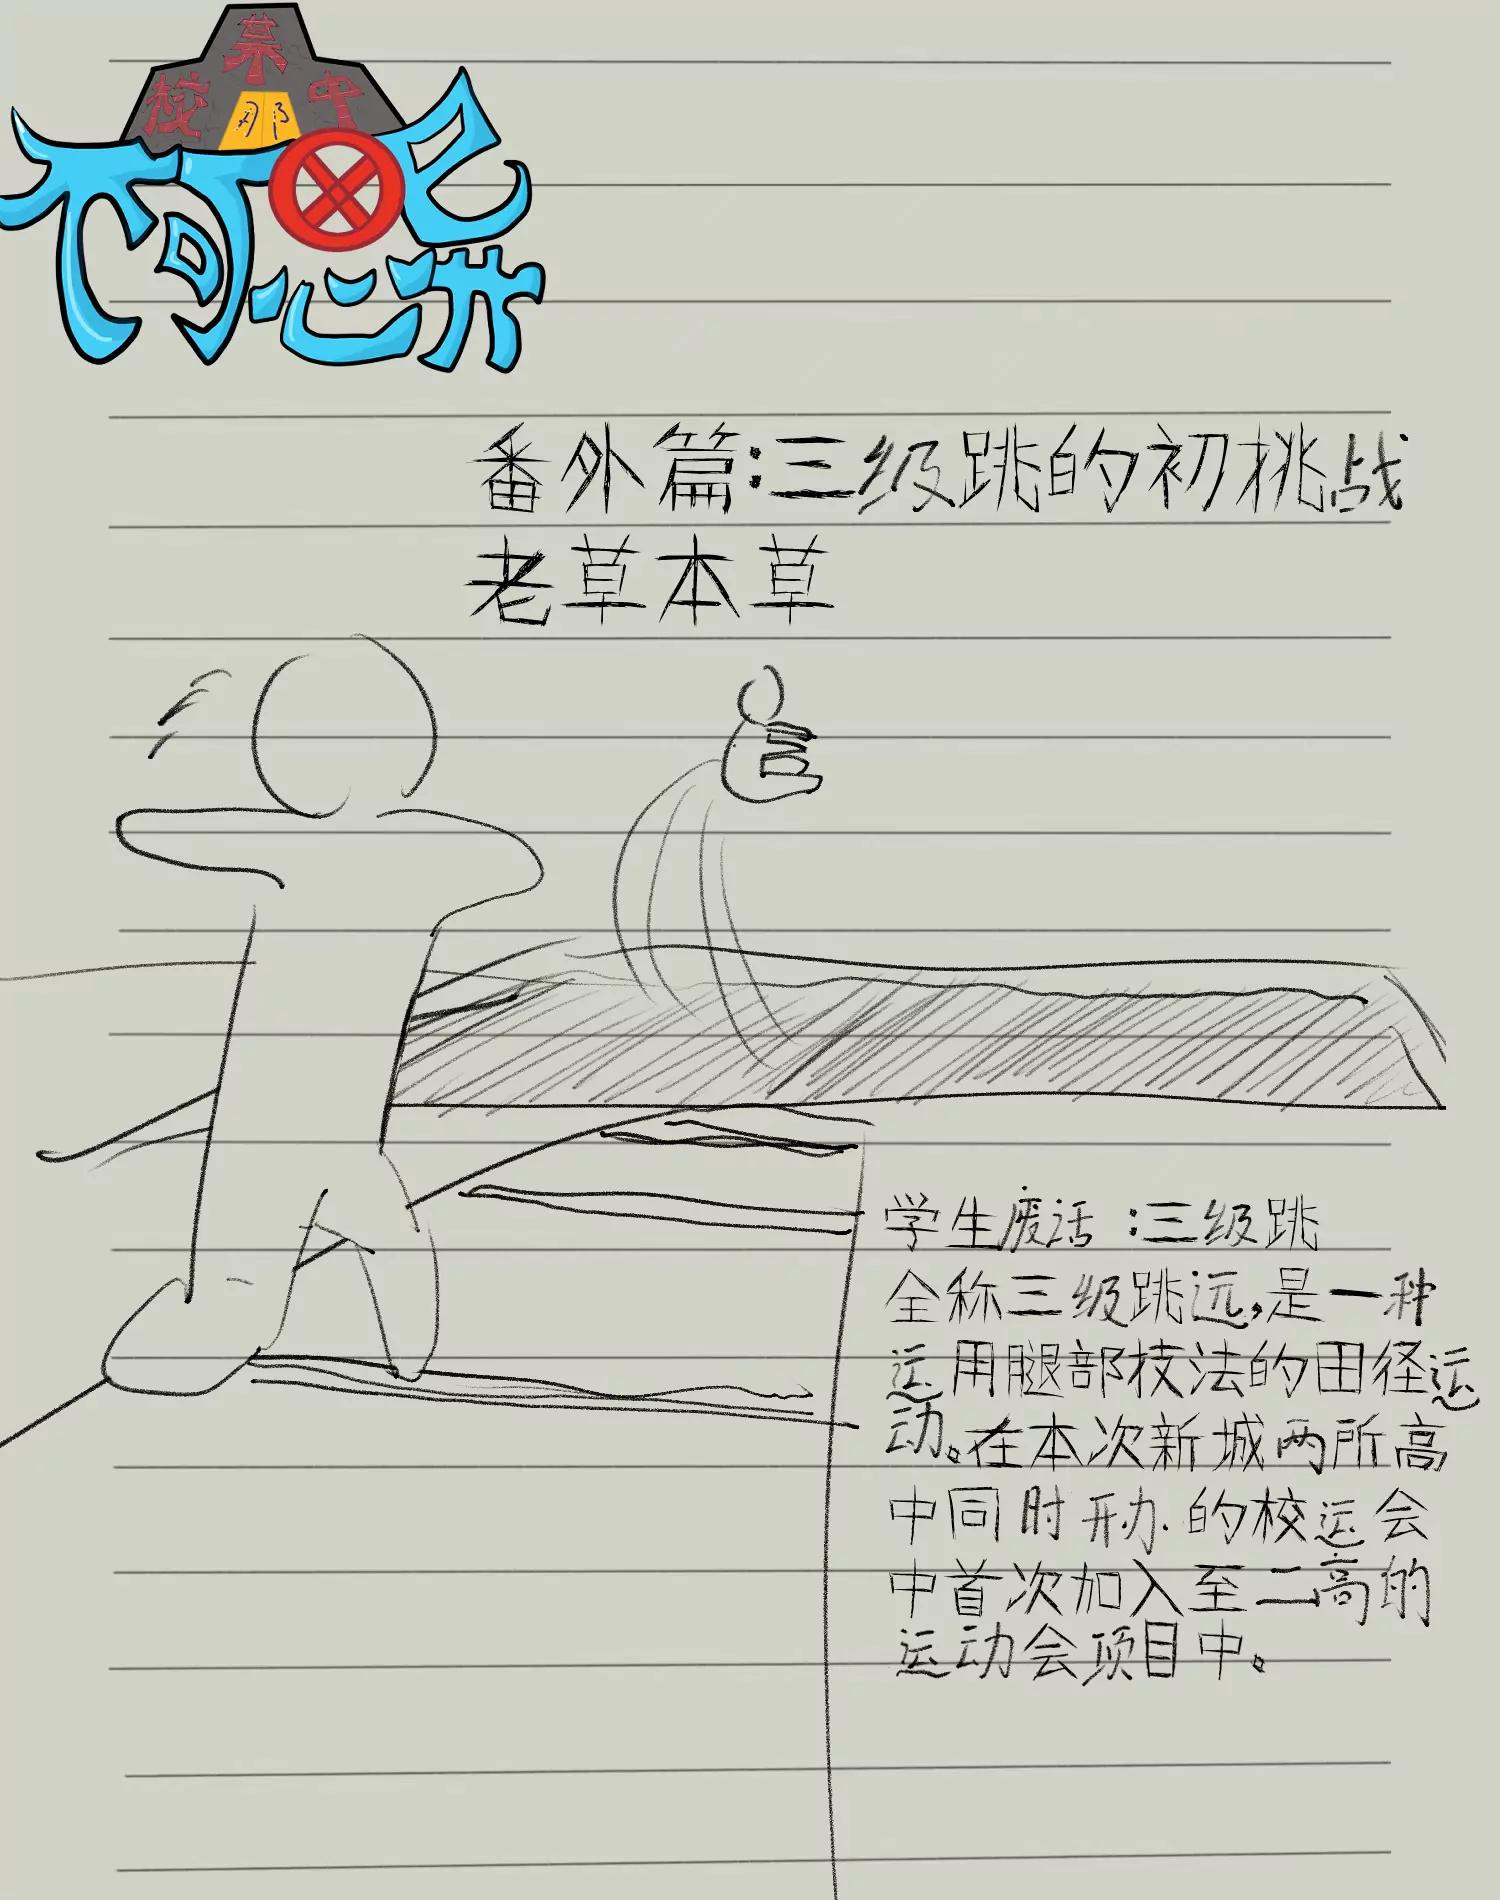 某
校 中
那
番外篇:三级跳的初挑战
老草本草
学生废话:三级跳
全称三级跳远,是一种
运用腿部技法的田径运
动。在本次新城两所高
中同时开办的校运会
中首次加入至二高的
运动会项目中。